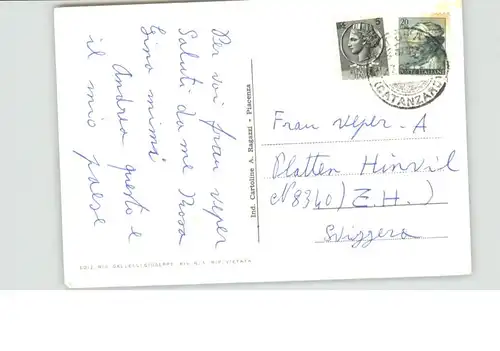 Per voi frau veper
Saluti da me Rosa
Egino mimi
Andrea questo e
il mio paese
Ind. Cartoline A. Ragazzi - Piacenza
20
POSTE ITALIANE
(CATANZARO)
Frau veper - A
Platten Hinvil
N 8340) Z.H.)
Svizzera